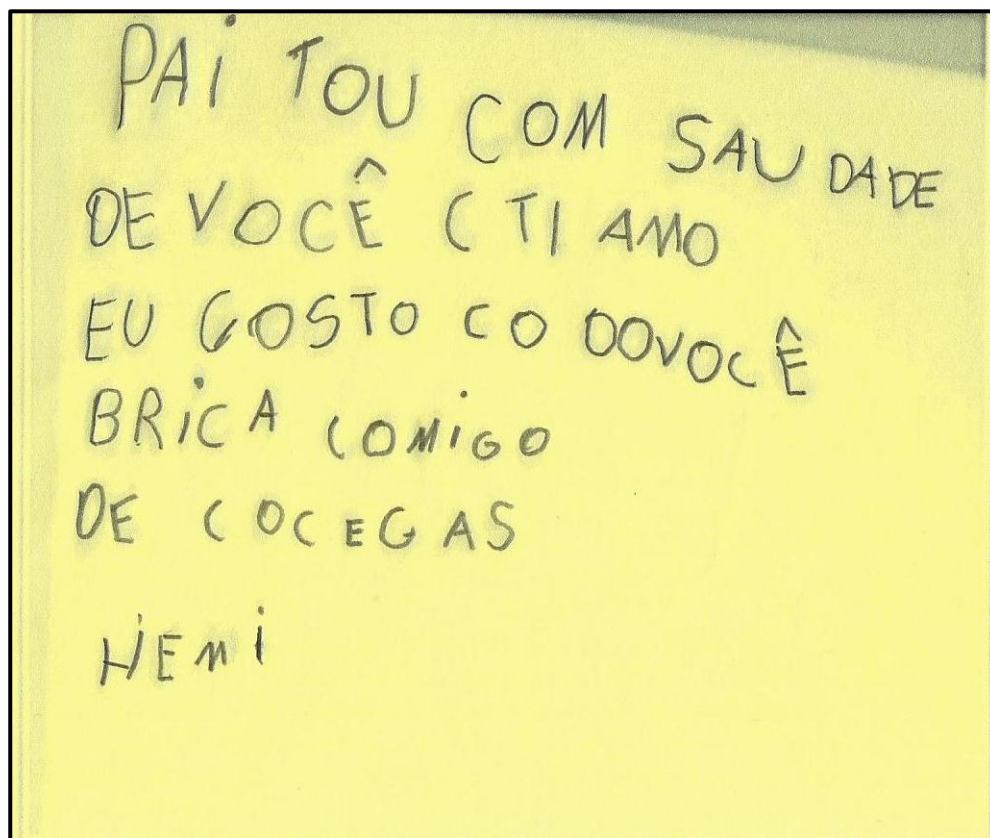 PAi TOU COM SAUDADE
DE VOCÊ C TI AMO
EU GOSTO CO DOVOCÊ
BRiCA COMiGO
DE COCEGAS